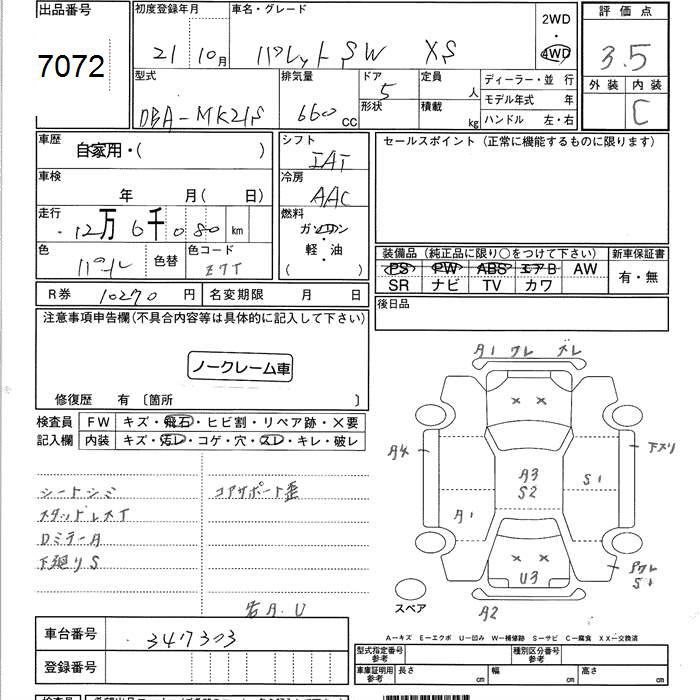 出品番号 初度登録年月 車名・グレード 2WD 評価点
7072 21 10月 パレットSW XS 4WD 3.5
型式 排気量 ドア 定員 ディーラー・並 行 外装 内装
DBA-MK21S 660cc 5 人 モデル年式 年 C
形状 積載 kg ハンドル 左・右
車歴 シフト セールスポイント (正常に機能するものに限ります)
自家用・( ) IAT
車検 冷房
年 月( 日) AAC
走行 燃料
12万6千080km ガソリン
軽・油
色 色替 色コード ( ) 装備品 (純正品に限り○をつけて下さい) 新車保証書
パール Z7T PS PW ABS エアB AW 有・無
SR ナビ TV カワ
R券 10270円 名変期限 月 日 後日品
注意事項申告欄(不具合内容等は具体的に記入して下さい)
ノークレーム車
修復歴 有 〔箇所 〕
検査員 FW キズ・飛石・ヒビ割・リペア跡・×要
記入欄 内装 キズ・汚レ・コゲ・穴・スレ・キレ・破レ
シートシミ コアサポート歪
スタッドレスT
DミラーA
下廻りS
岩A.U
A1 ワレ ズレ
× ×
A4 下ズリ
A3
S2
S1
A1
× ×
U3
Pワレ
S1
スペア A2
A-キズ E-エクボ U-凹み W-補修跡 S-サビ C-腐食 XX-交換済
車台番号 347303 型式指定番号 参考 種別区分番号 参考
登録番号 車庫証明用 参考 長さ cm 幅 cm 高さ cm